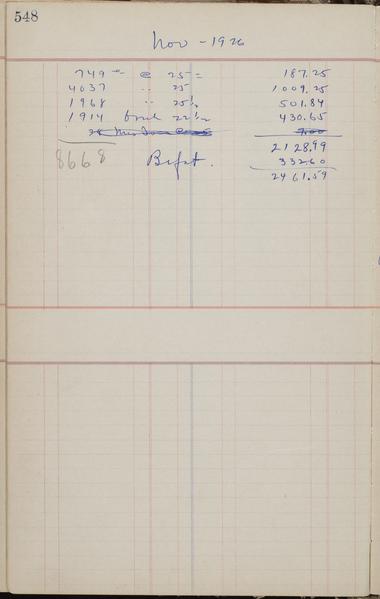 548
Nov - 1926
749 @ 25 = 187.25
4037 " 25 1009.25
1968 " 25½ 501.84
1914 22½ 430.65
2128.99
8668 33260
2461.59